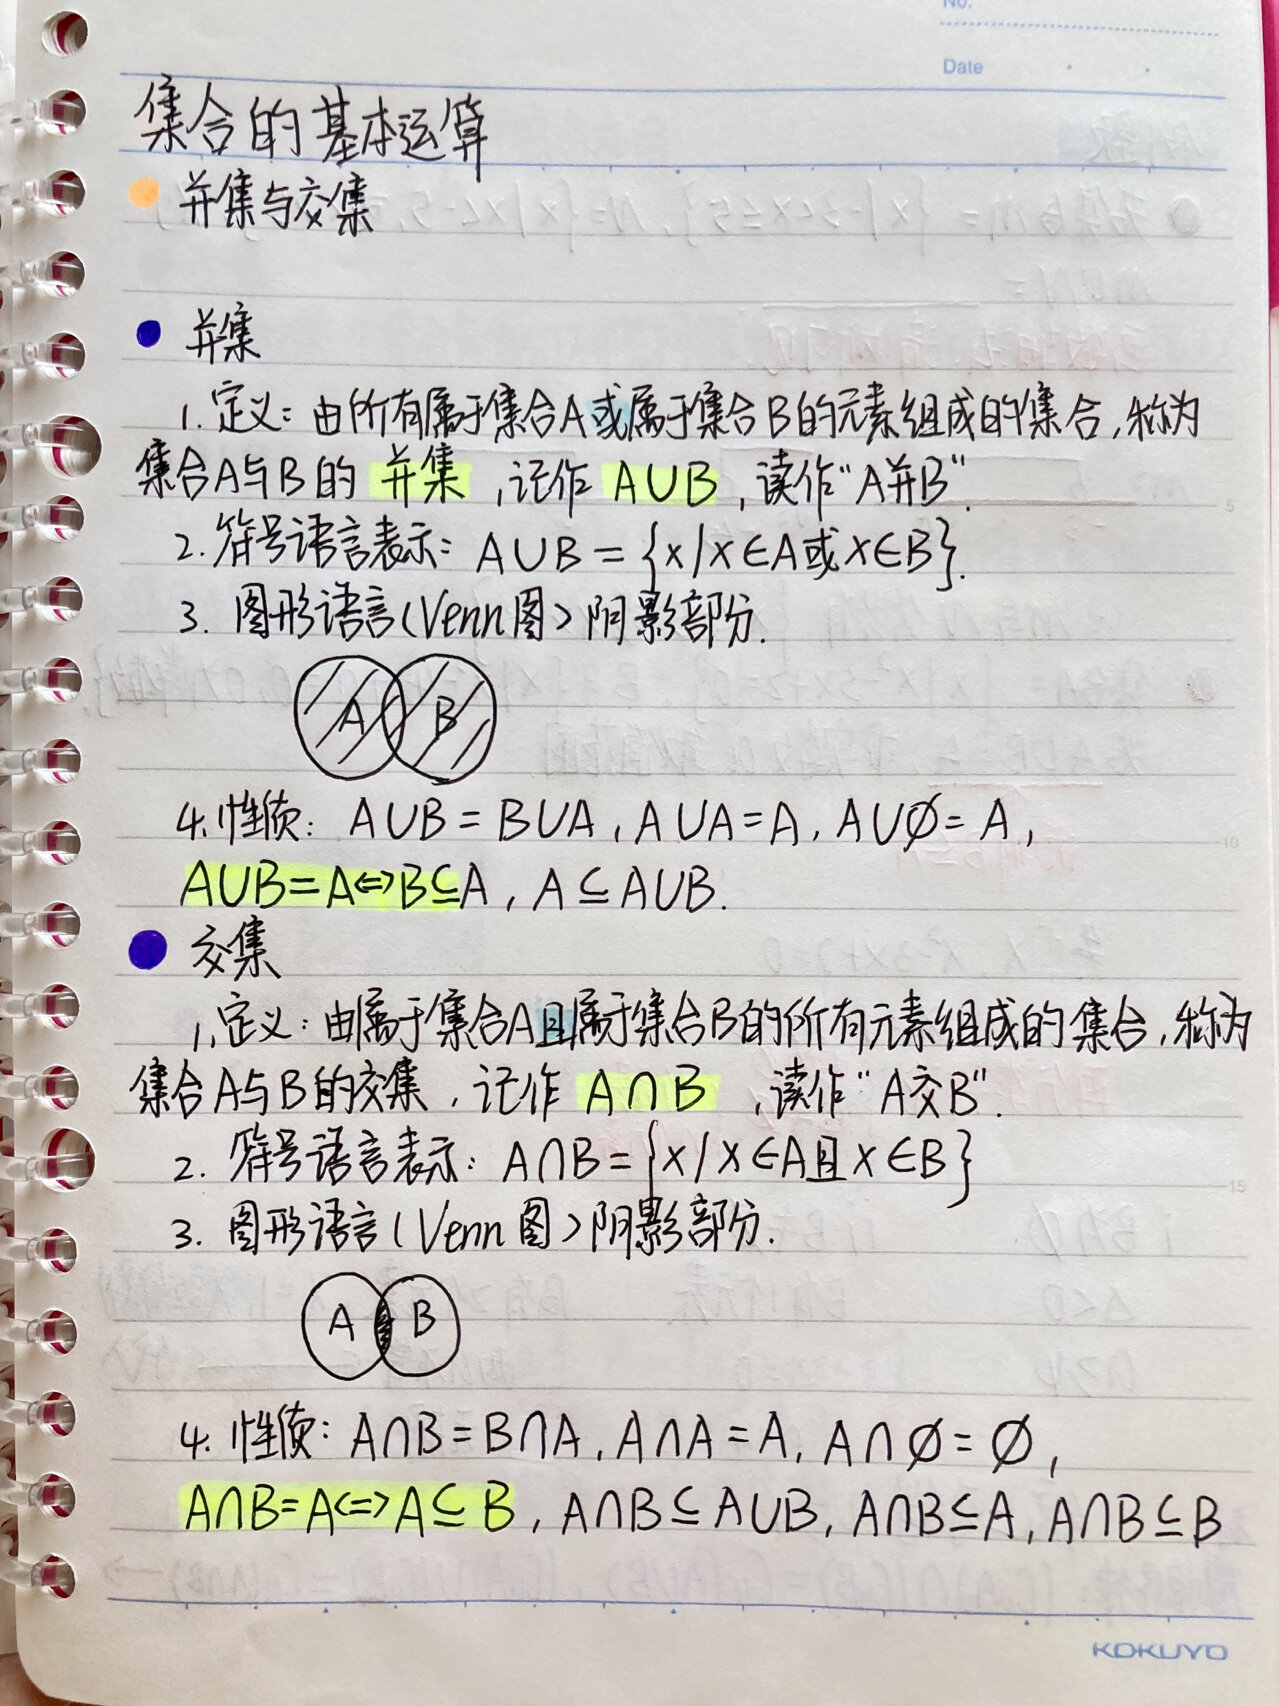 No.
Date
集合的基本运算
并集与交集
并集
1.定义：由所有属于集合A或属于集合B的元素组成的集合,称为
集合A与B的 并集 ,记作 A∪B ,读作“A并B”.
2.符号语言表示：A∪B={x|x∈A或x∈B}.
3.图形语言(Venn图)阴影部分.
A B
5
4.性质：A∪B=B∪A,A∪A=A,A∪∅=A,
10
A∪B=A⇔B⊆A,A⊆A∪B.
交集
1.定义：由属于集合A且属于集合B的所有元素组成的集合,称为
集合A与B的交集,记作 A∩B ,读作“A交B”.
2.符号语言表示：A∩B={x|x∈A且x∈B}
15
3.图形语言(Venn图)阴影部分.
A B
4.性质：A∩B=B∩A,A∩A=A,A∩∅=∅,
A∩B=A⇔A⊆B,A∩B⊆A∪B,A∩B⊆A,A∩B⊆B
KOKUYO